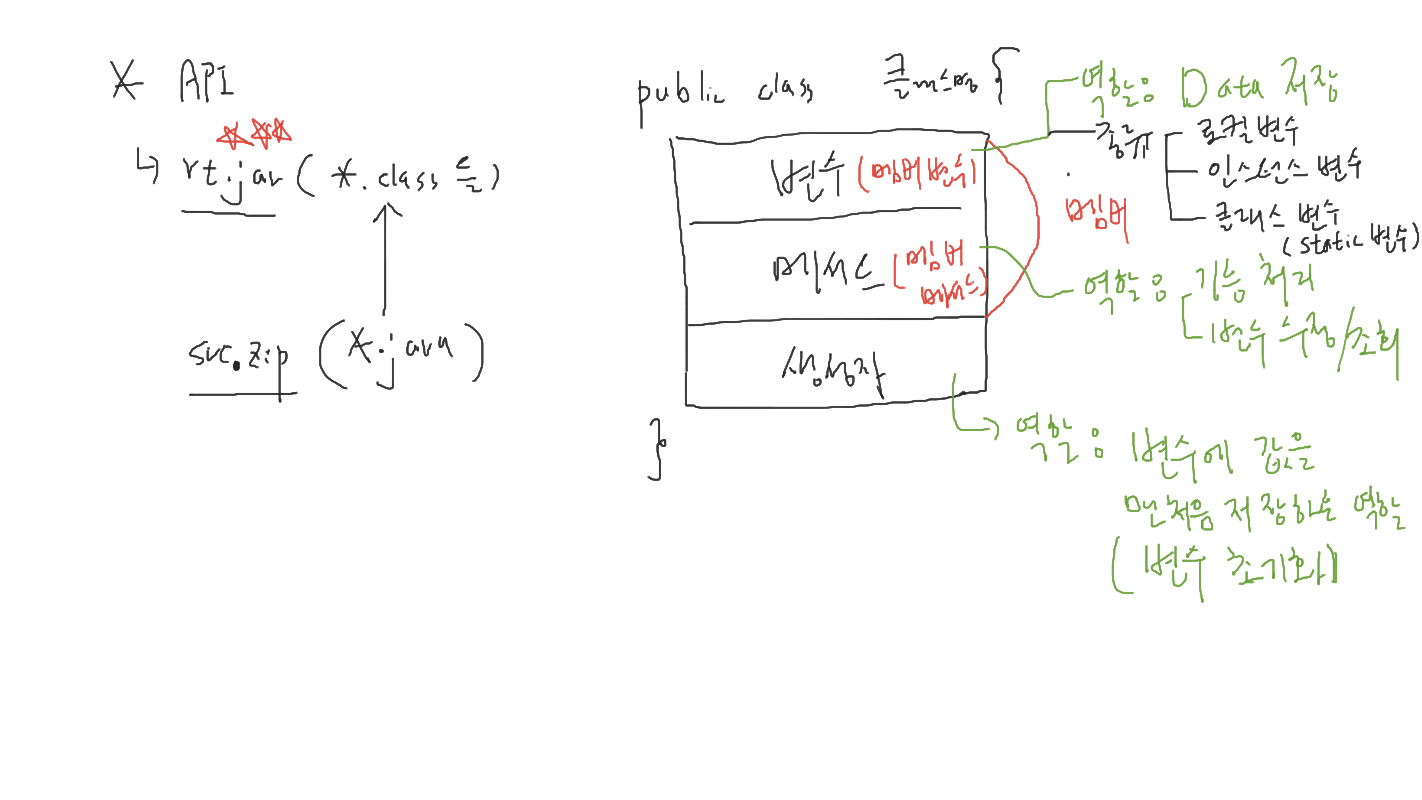 * API
↳ rt.jar ( *.class 들)
src.zip (*.java)
public class 클래스명 {
변수 (멤버변수)
메서드 (멤버
메서드)
생성자
}
멤버
역할은 Data 저장
종류
로컬변수
인스턴스 변수
클래스 변수
(static 변수)
역할은 기능 처리
변수 수정/조회
역할은 변수에 값을
맨처음 저장하는 역할
(변수 초기화)